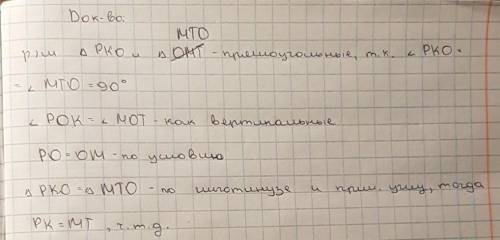 Док-во:
MTO
р/м △ PKO и △ OMT - прямоугольные, т.к. ∠ PKO =
= ∠ MTO = 90°
∠ POK = ∠ MOT - как вертикальные
PO = OM - по условию
△ PKO = △ MTO - по гипотенузе и прил. углу, тогда
PK = MT, ч.т.д.